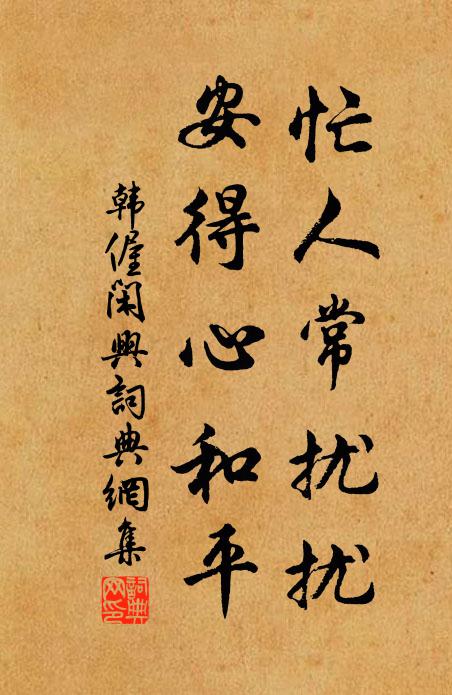 忙人常扰扰
安得心和平
韩偓闲興詞典網集
詞典网印